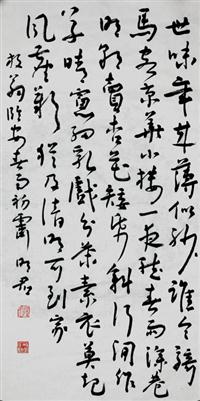 世味年來薄似紗誰令騎
馬客京華小樓一夜聽春雨深巷
明朝賣杏花矮紙斜行閒作
草晴窗細乳戲分茶素衣莫起
風塵歎猶及清明可到家
放翁臨安春雨初霽